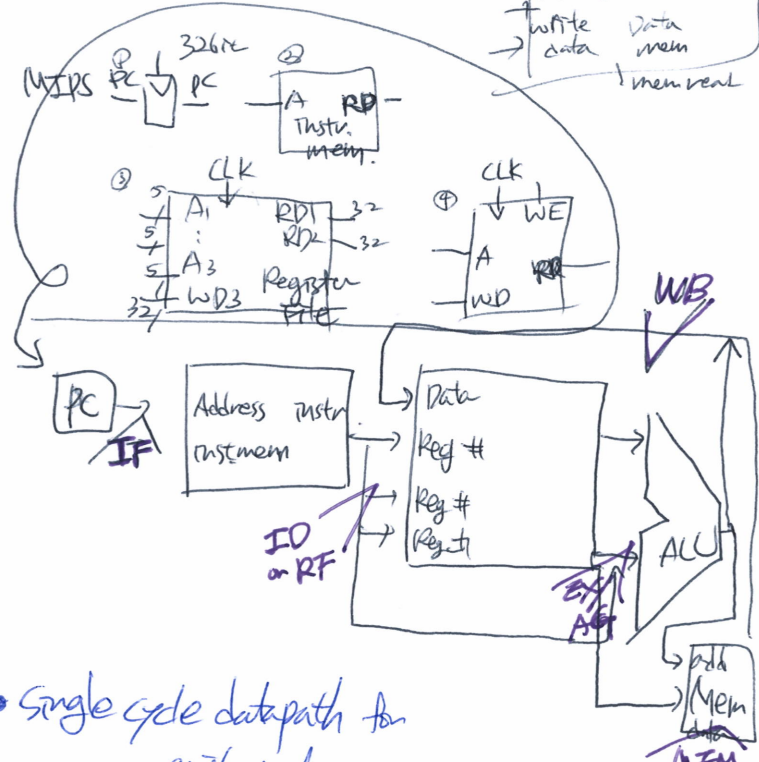 write Data
data mem
memread
32bit
MIPS PC PC
①
②
A RD
instr.
mem.
③ CLK
5 A1 RD1 32
5 : RD2 32
5 A3
32 WD3 Register
File
④ CLK
WE
A RD
WD
WB
PC
IF
Address instr
instmem
Data
Reg #
Reg #
Reg #
ID
or RF
EX
ALU
add
Mem
data
MEM
• Single cycle datapath for